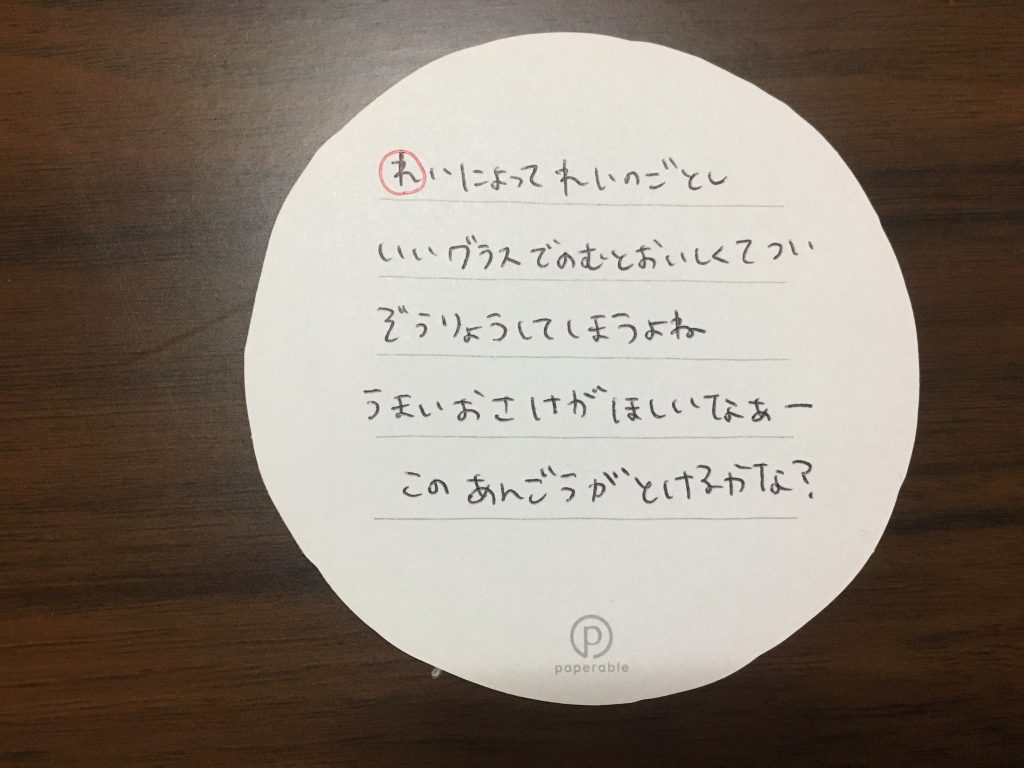 れいによって れいのごとし
いいグラスでのむとおいしくてつい
ぞうりょうしてしまうよね
うまいおさけがほしいなぁー
このあんごうがとけるかな?
paperable